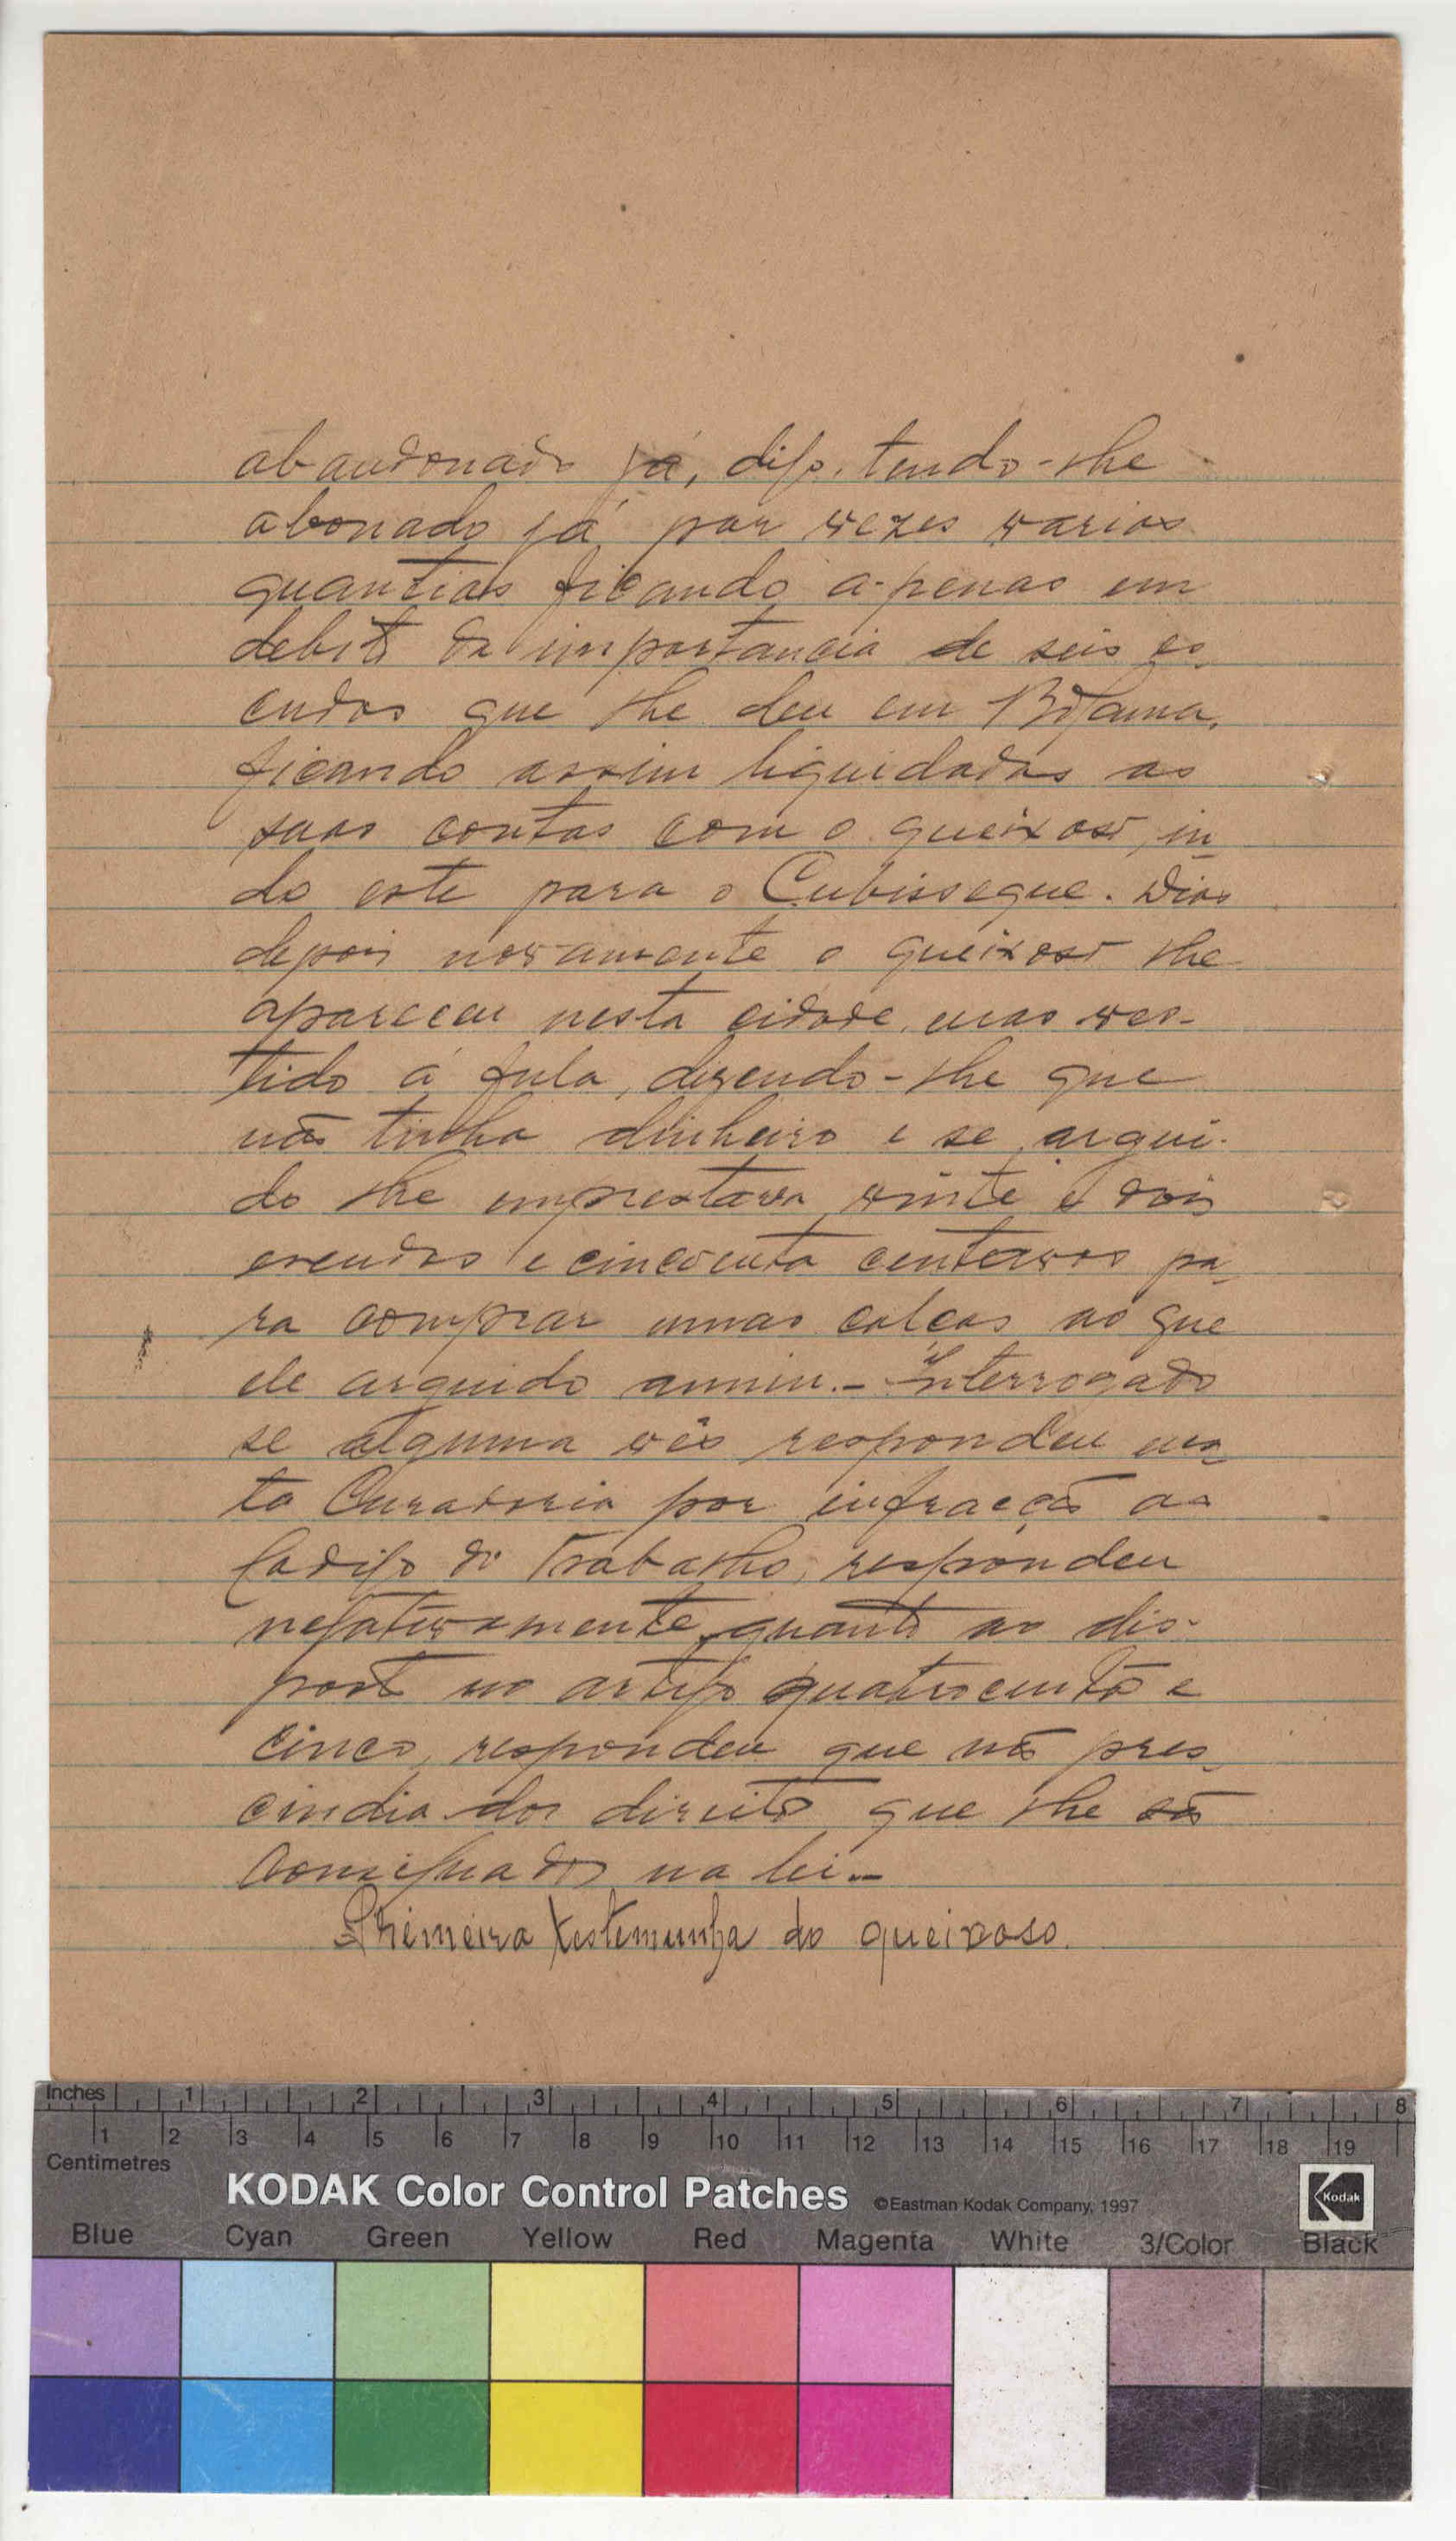 abandonado já, digo, tendo-lhe
abonado já por vezes varias
quantias ficando a-penas em
debito da importancia de seis es
cudos que lhe deu em Bolama,
ficando assim liquidadas as
suas contas com o queixoso, in
do este para o Cubisseque. Dias
depois novamente o queixoso lhe
apareceu nesta cidade, mas ves-
tido á fula, dizendo-lhe que
não tinha dinheiro e se argui-
do lhe emprestava vinte e dois
escudos e cincoenta centavos pa
ra comprar umas calças ao que
ele arguido anuiu.- Interrogado
se alguma vês respondeu nes
ta Curadoria por infracção ao
Codigo do Trabalho, respondeu
negativamente, quanto ao dis-
posto no artigo quatrocentos e
cinco, respondeu que não pres
cindia dos direitos que lhe são
consignados na lei.-
Primeira testemunha do queixoso.
Inches 1 2 3 4 5 6 7 8
1 2 3 4 5 6 7 8 9 10 11 12 13 14 15 16 17 18 19
Centimetres
KODAK Color Control Patches ©Eastman Kodak Company, 1997 Kodak
Blue Cyan Green Yellow Red Magenta White 3/Color Black